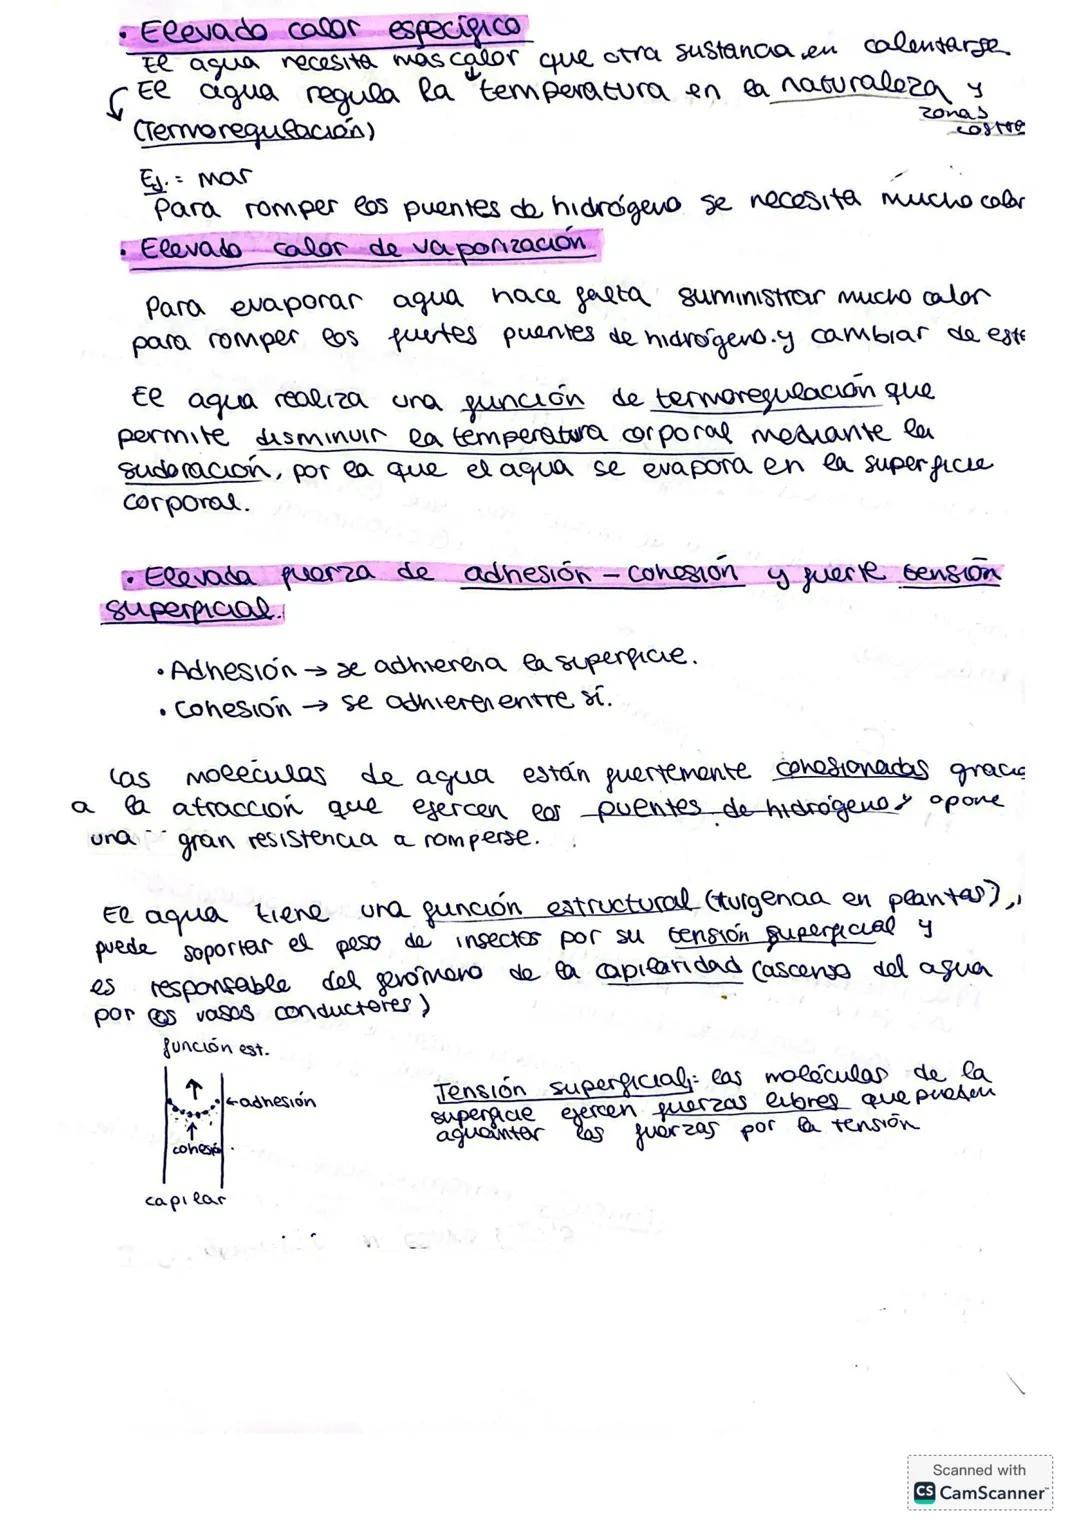 • Elevado calor específico
El agua necesita más calor que otra sustancia en calentarse
El agua regula la temperatura en la naturaleza y
zonas
coste
(Termoregulación)
Ej. = mar
Para romper los puentes de hidrógeno se necesita mucho calor
• Elevado calor de vaporización
Para evaporar agua hace falta suministrar mucho calor
para romper los fuertes puentes de hidrógeno. y cambiar de esta
El agua realiza una función de termoregulación que
permite disminuir la temperatura corporal mediante la
sudoración, por la que el agua se evapora en la superficie
corporal.
• Elevada fuerza de adhesión – cohesión y fuerte tensión
superficial.
• Adhesión → se adhieren a la superficie.
• Cohesión → se adhieren entre sí.
Las moléculas de agua están fuertemente cohesionadas gracia
a la atracción que ejercen los puentes de hidrógeno y opone
una gran resistencia a romperse.
El agua tiene una función estructural (turgencia en plantas),
puede soportar el peso de insectos por su tensión superficial y
es responsable del fenómeno de la capilaridad (ascenso del agua
por los vasos conductores)
función est.
← adhesión
cohesió
capilar
Tensión superficial: las moléculas de la
superficie ejercen fuerzas libres que pueden
aguantar las fuerzas por la tensión
Scanned with
CS CamScanner